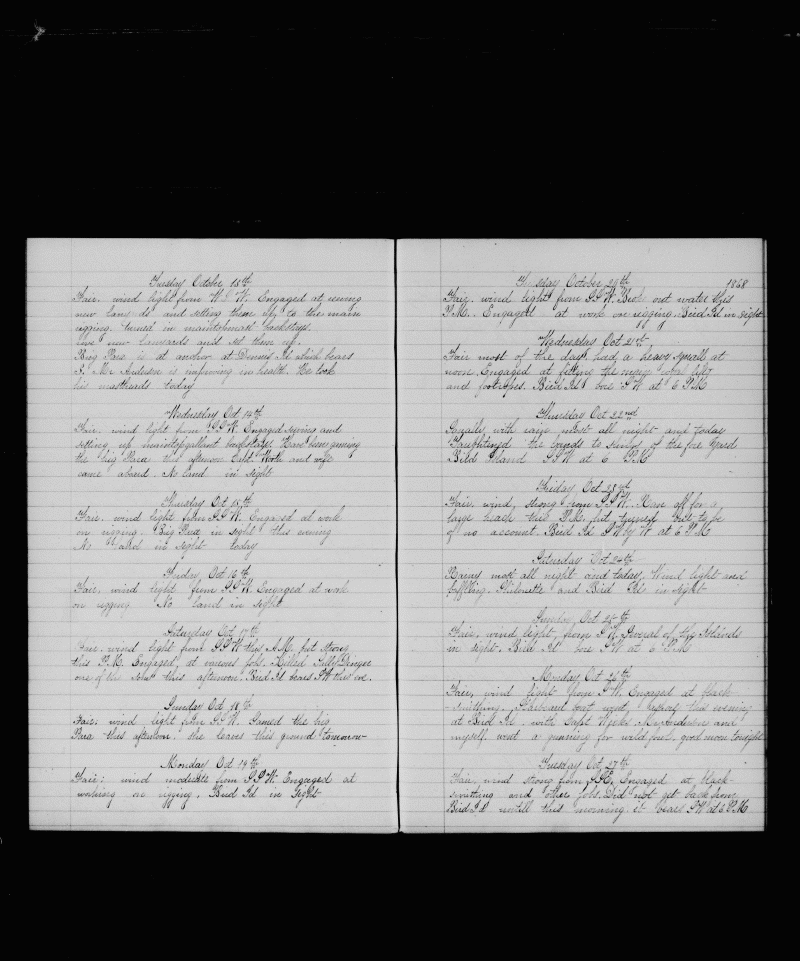 Tuesday October 13th
Fair. wind light from W.S.W. Engaged at seeing
new lanyards and setting them up to the main
rigging. turned in maintopmast backstays.
new lanyards and set them up.
Brig Para is at anchor at Dennis Id which bears
S. Mr. Anderson is improving in health. We took
his mastheads today
Wednesday Oct 14th
Fair. wind light from S.S.W. Engaged seizing and
setting up maintopgallant backstays. Have been gamming
the brig Para this afternoon Capt Worth and wife
came aboard. No land in sight
Thursday Oct 15th
Fair. wind light from S.S.W. Engaged at work
on rigging. Brig Para in sight this evening
No land in sight today
Friday Oct 16th
Fair, wind light from S.S.W. Engaged at work
on rigging No land in sight.
Saturday Oct 17th
Fair, wind light from S.S.W this A.M. but strong
this P.M. Engaged, at various jobs. Killed
one of the this afternoon. Bird Id bears SW this eve.
Sunday Oct 18th
Fair: wind light from S.S.W. Gamed the brig
Para this afternoon she leaves this ground tomorrow
Monday Oct 19th
Fair: wind moderate from S.S.W. Engaged at
working on rigging. Bird Id in Sight
Tuesday October 20th 1868
Fair, wind light from S.S.W. Broke out water this
P.M. Engaged at work on rigging. Bird Id in sight
Wednesday Oct 21st
Fair most of the day had a heavy squall at
noon. Engaged at fitting the main yard lifts
and footropes. Bird Id bore SW at 6 P.M
Thursday Oct 22nd
Squally with rain most all night and today
Straightened the bends to slings of the fore yard
Bird Island SSW at 6 P.M
Friday Oct 23rd
Fair, wind strong from S.S.W. Run off for a
large this P.M. but turned out to be
of no account. Bird Id SW by W at 6 P.M
Saturday Oct 24th
Rainy most all night and today, Wind light and
baffling. and Bird Ids in sight
Sunday Oct 25th
Fair, wind light from S.W. Several of the Islands
in sight. Bird Id bore SW at 6 P.M
Monday Oct 26th
Fair, wind light from S.W. Engaged at black-
-smithing. Starboard boat went, ashore this evening
at Bird Id. with Capt Weeks Mr Anderson and
myself. went a gunning for wild fowl, good moon tonight
Tuesday Oct 27th
Fair, wind strong from S.S.E. Engaged at black-
smithing and other jobs. Did not get back from
Bird Id untill this morning. it bears SW at 6 P.M